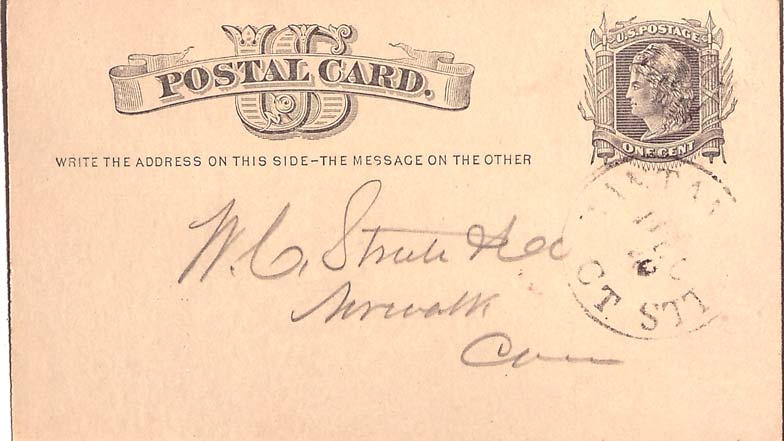 U.S. POSTAGE
US
POSTAL CARD.
ONE CENT
WRITE THE ADDRESS ON THIS SIDE–THE MESSAGE ON THE OTHER
W. C.
Norwalk
Conn
DEC
CT.